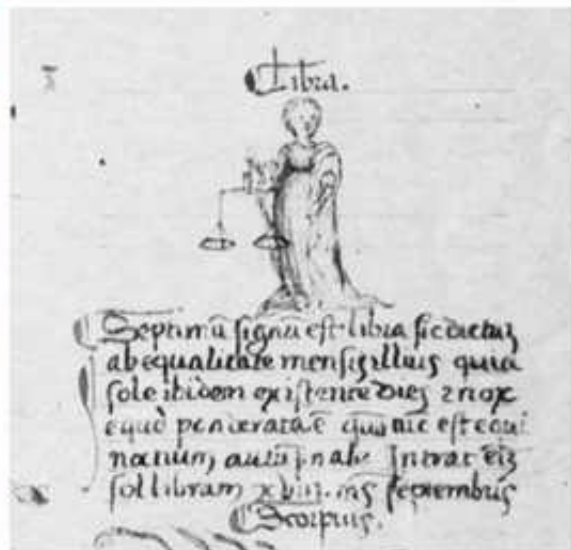 Libra.
Septimũ signũ est libra sic dictuʒ
ab equalitate mensis illius quia
sole ibidem existente dies ⁊ nox
equa
nic est equi
noctium, autũpnale Intrat eiʒ
sol libram xviij. mẽs septembris
Scorpius.